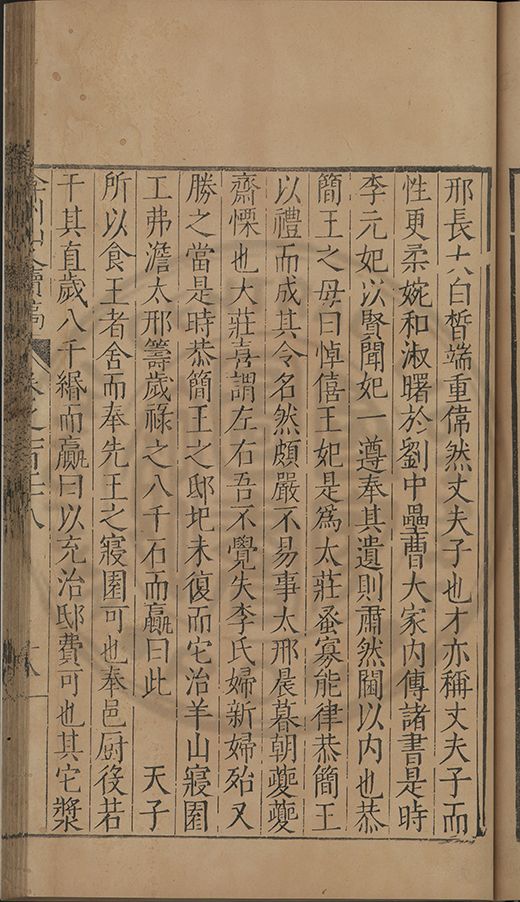 邢長六白皙端重偉然丈夫子也才亦稱丈夫子而
性更柔婉和淑曙於劉中壘曹大家內傳諸書是時
李元妃以賢聞妃一遵奉其遺則肅然閫以內也恭
簡王之母曰悼僖王妃是爲太莊蚤寡能律恭簡王
以禮而成其令名然頗嚴不易事太邢晨暮朝夔夔
齋慄也大莊喜謂左右吾不覺失李氏婦新婦殆又
勝之當是時恭簡王之邸圮未復而宅治羊山寢園
工弗澹太邢籌歲祿之八千石而贏曰此 天子
所以食王者舍而奉先王之寢園可也奉邑厨役若
干其直歲八千緡而贏曰以充治邸費可也其宅漿
續稿 卷之一百二十八